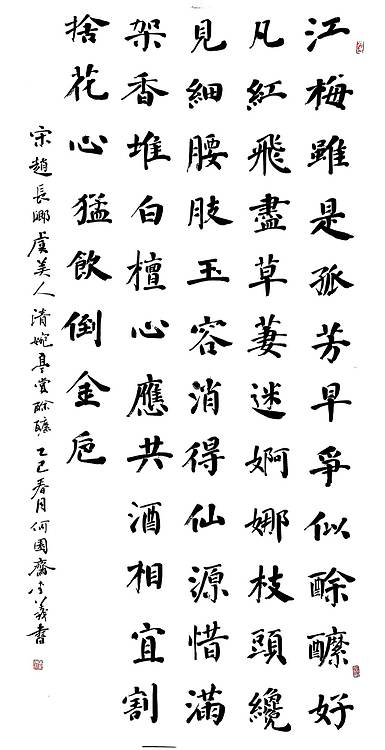 江梅雖是孤芳早爭似酴醾好
凡紅飛盡草萋迷婀娜枝頭纔
見細腰肢玉容消得仙源惜滿
架香堆白檀心應共酒相宜割
捨花心猛飲倒金卮
宋趙長卿虞美人清婉亭賞酴醾乙巳春月何齋義書